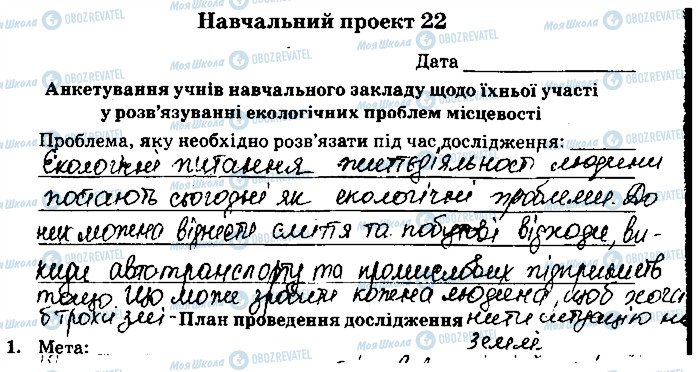 Навчальний проект 22
Дата
Анкетування учнів навчального закладу щодо їхньої участі
у розв'язуванні екологічних проблем місцевості
Проблема, яку необхідно розв'язати під час дослідження:
Екологічні питання життєдіяльності людини
постають сьогодні як екологічні проблеми. До
них можна віднести сміття та побутові відходи, ви-
киди автотранспорту та промислових підприємств
тощо. Що може зробити кожна людина, щоб хоча
б трохи змі-
План проведення дослідження
нити ситуацію на
Землі
1. Мета:
Моя Школа OBOZREVATEL